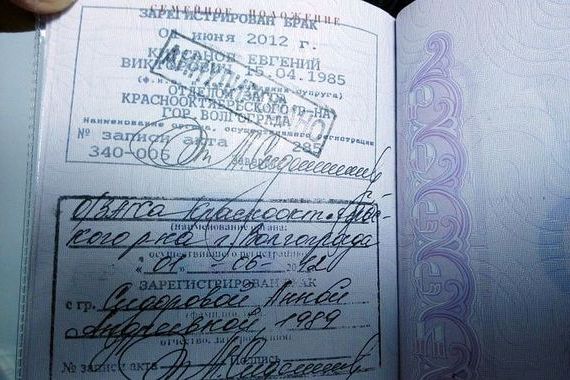 СЕМЕЙНОЕ ПОЛОЖЕНИЕ
ЗАРЕГИСТРИРОВАН БРАК
01 июня 2012 г.
ЕВГЕНИЙ
15.04.1985
супруга)
ОТДЕЛОМ
КРАСНООКТЯБРЬСКОГО Р-НА
ГОР. ВОЛГОГРАДА
Наименование органа, осуществившего регистрации
№ записи акта 285
340-006
ОЗАГСа Краснооктябрьс-
кого р-на г. Волгограда
(наименование органа,
осуществившего регистрацию)
« 01 » - 06 - 2012
ЗАРЕГИСТРИРОВАН БРАК
с гр. Сидоровой Анной
Андреевной, 1989
отчество, дата рожд.
№ записи акта Подпись